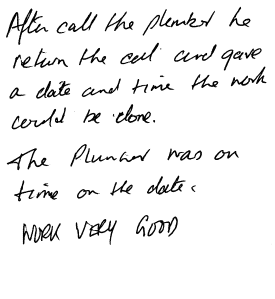 After call the plumber he
return the call and gave
a date and time the work
could be done.
The Plumber was on
time on the date.
WORK VERY GOOD